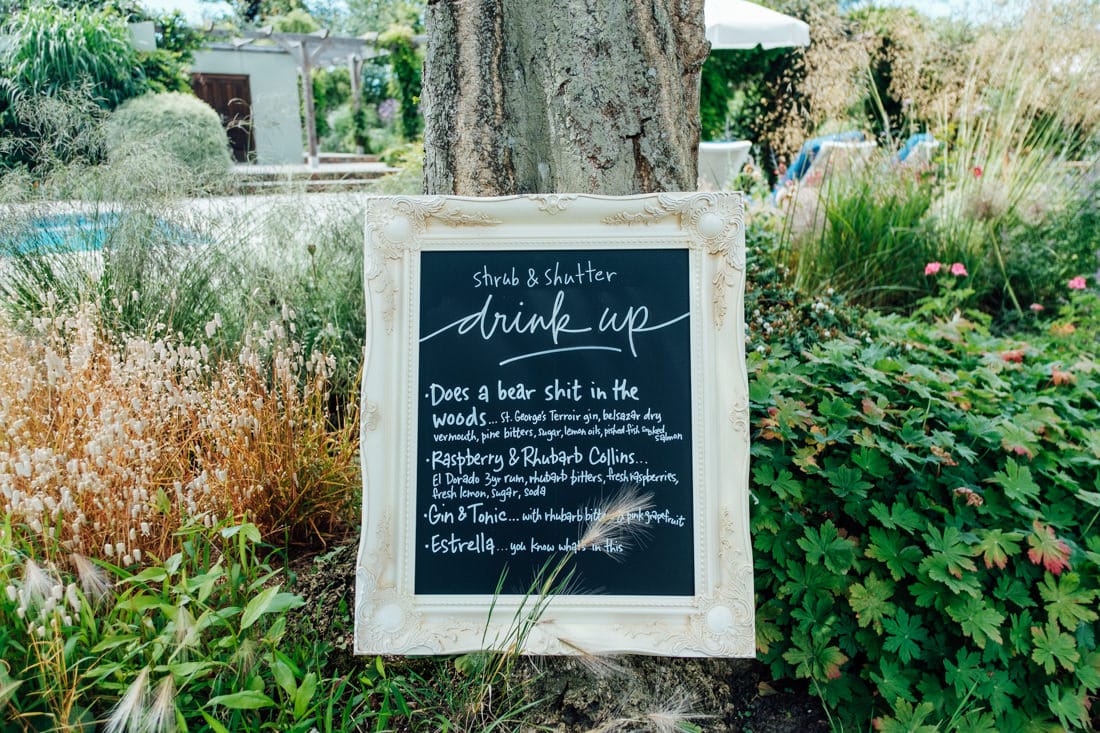 shrub & shutter
drink up
·Does a bear shit in the
woods... St. George's Terroir gin, belsazar dry
vermouth, pine bitters, sugar, lemon oils, pished fish smoked
salmon
·Raspberry & Rhubarb Collins...
El Dorado 3yr rum, rhubarb bitters, fresh raspberries,
fresh lemon, sugar, soda
·Gin & Tonic... with rhubarb pink grapefruit
·Estrella... you know what's in this